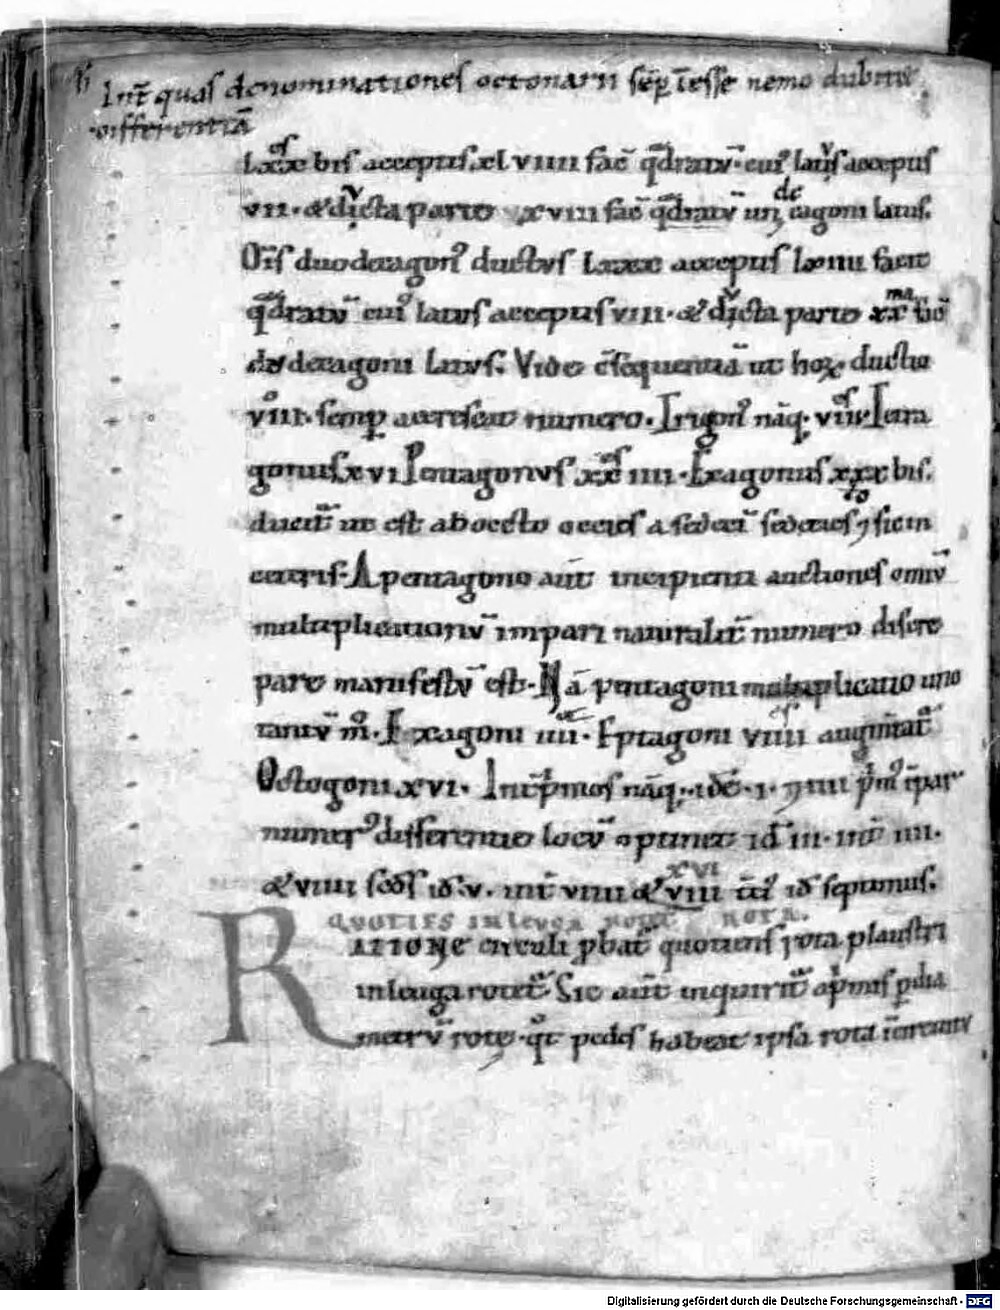 Int̄ quas denominationes octonarii sēp īesse nemo dubitat
differentiā
lxxx bis acceptus xl viiii fac̄ q̄dratū cui' lat' acceptus
vii · & dicta parte xviii fac̄ q̄dratū undecagoni latus.
Oīs duodecagon' ductus lxxx acceptus lxiiii facit
q̄dratū cui' latus acceptus viii · & dicta parte
duodecagoni latus. Vide c̄sequentiā ut hoꝝ ductio
viii · semp̄ accrescat numero. Trigon' nāq; viii · Tetra
gonus xvi Pentagonus xx iiii · Exagonus xxx bis.
ducit̄ ut est ab octo octies a sedeci sedecies ⁊ sic in
ceteris. A pentagono aut̄ incipiunt auctiones omniū
multiplicationū impari naturalit̄ numero discre
pare manifestū est. Nā pentagoni multiplicatio uno
tantū m̄. Exagoni iiii. Eptagoni viiii augmtat̄
Octogoni xvi. Int̄ p̄mos nāq; id ē · i · ⁊ iiii p̄m' īpar
numer' differentie locū optinet id iii · int̄ iiii ·
& viiii scds id v. int̄ viiii & viii xvi tci' id septimus.
QUOTIES IN LEUGA ROTET ROTA.
RATIONE circuli pbat̄ quotiens rota plaustri
in leuga rotet̄. Sic aut̄ inquirit̄ ap̄mis p dia
metrū rotę · q̄t pedes habeat ipsa rota
Digitalisierung gefördert durch die Deutsche Forschungsgemeinschaft - DFG